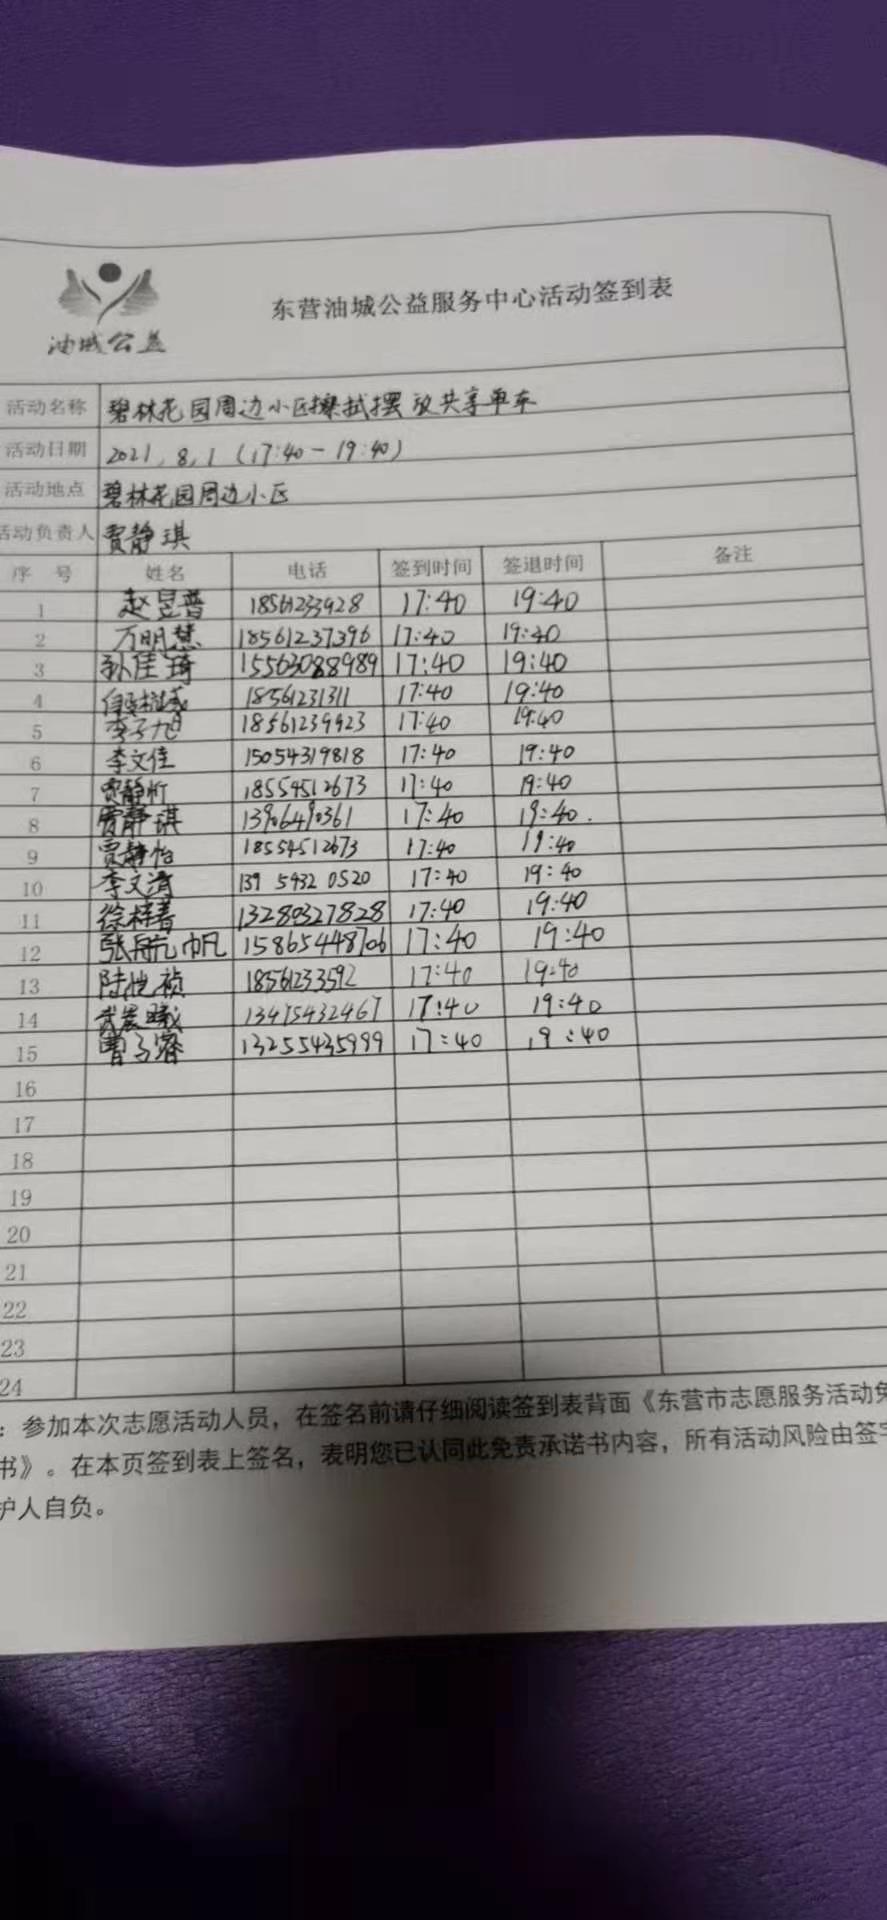 油城公益
东营油城公益服务中心活动签到表
活动名称 碧林花园周边小区擦拭摆放共享单车
活动日期 2021.8.1 (17:40-19:40)
活动地点 碧林花园周边小区
活动负责人 贾静琪
序号 姓名 电话 签到时间 签退时间 备注
1 赵昱普 18561233928 17:40 19:40
2 万明慧 18561237396 17:40 19:40
3 孙佳琦 15563088989 17:40 19:40
4 18561231311 17:40 19:40
5 李子旭 18561239923 17:40 19:40
6 李文佳 15054319818 17:40 19:40
7 贾静忻 18554512673 17:40 19:40
8 贾静琪 13906490361 17:40 19:40.
9 贾静怡 18554512673 17:40 19:40
10 李文清 139 5432 0520 17:40 19:40
11 徐梓春 13280327828 17:40 19:40
12 张航帆 15865448706 17:40 19:40
13 陆恺祯 18561233592 17:40 19:40
14 武晨曦 13475432467 17:40 19:40
15 曹子睿 13255435999 17:40 19:40
16
17
18
19
20
21
22
23
24
:参加本次志愿活动人员，在签名前请仔细阅读签到表背面《东营市志愿服务活动免
书》。在本页签到表上签名，表明您已认同此免责承诺书内容，所有活动风险由签字
护人自负。